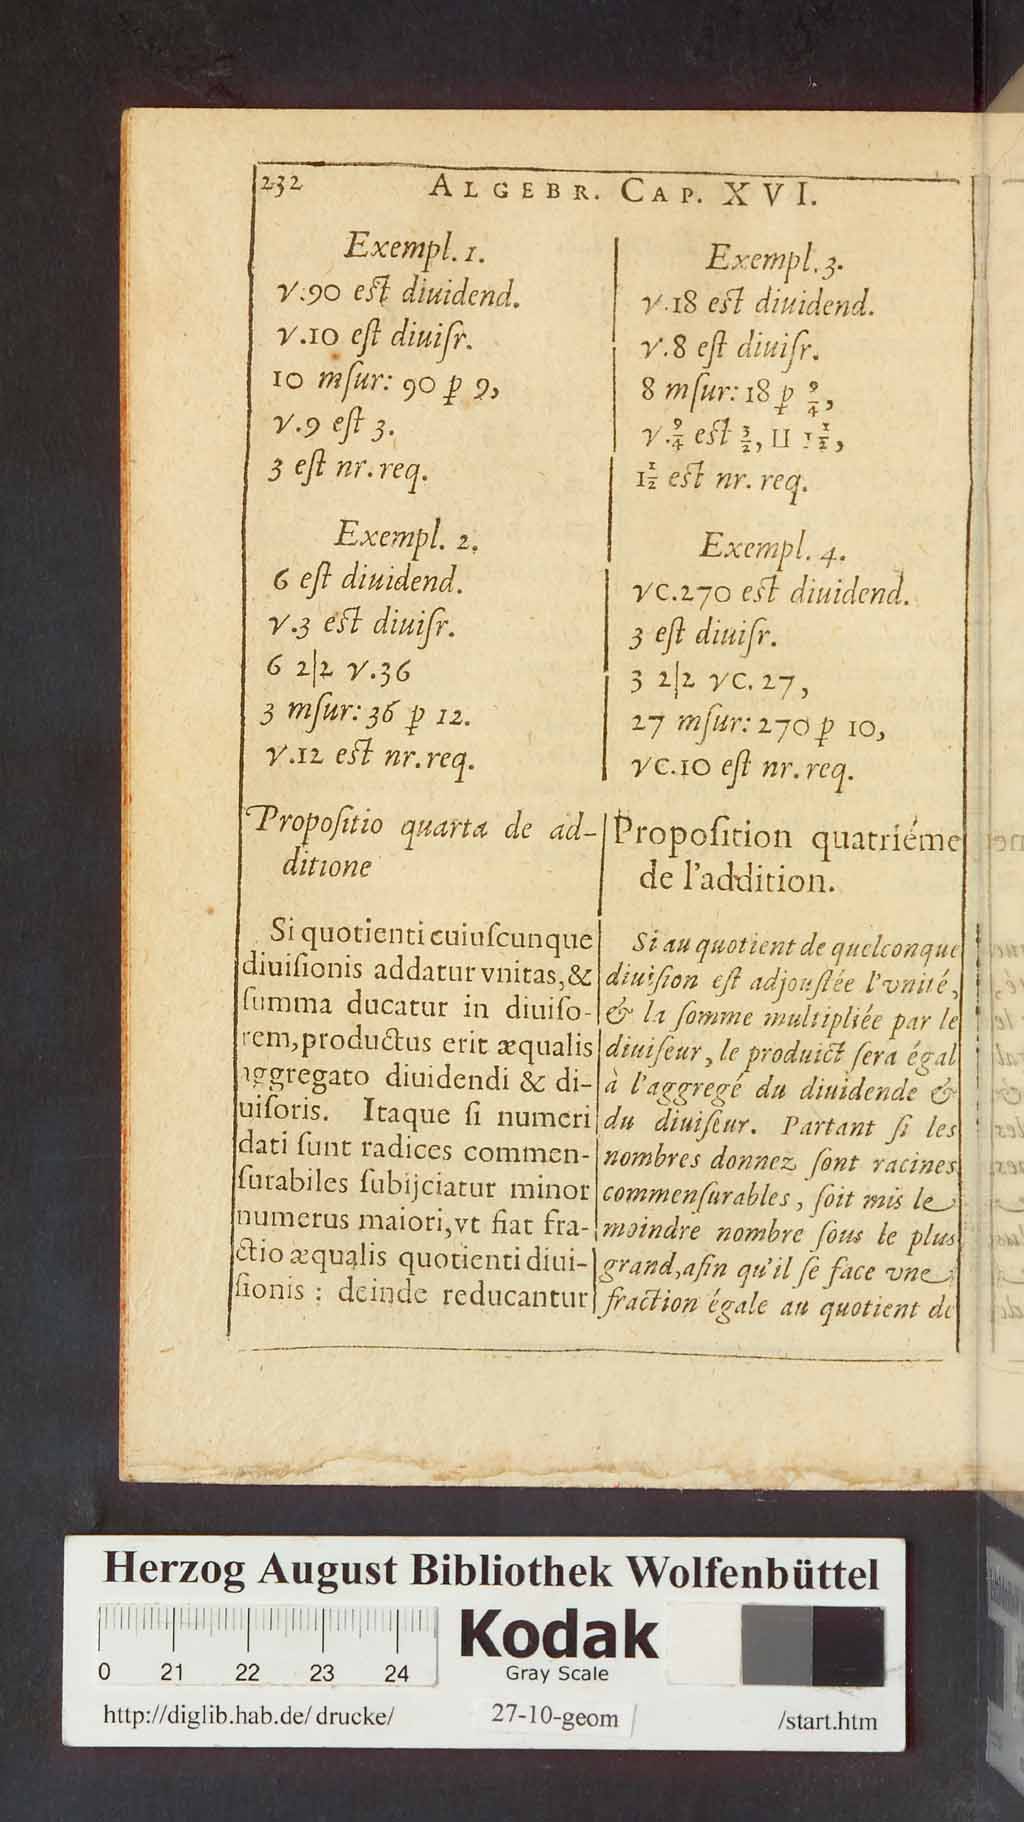 232 ALGEBR. CAP. XVI.
Exempl. 1.
√.90 eſt diuidend.
√.10 eſt diuiſr.
10 mſur: 90 ꝑ 9,
√.9 eſt 3.
3 eſt nr. req.
Exempl. 2.
6 eſt diuidend.
√.3 eſt diuiſr.
6 2|2 √.36
3 mſur: 36 ꝑ 12.
√.12 eſt nr. req.
Exempl. 3.
√.18 eſt diuidend.
√.8 eſt diuiſr.
8 mſur: 18 ꝑ 9/4,
√.9/4 eſt 3/2, II 1 1/2,
1 1/2 eſt nr. req.
Exempl. 4.
√C.270 eſt diuidend.
3 eſt diuiſr.
3 2|2 √C. 27,
27 mſur: 270 ꝑ 10,
√C.10 eſt nr. req.
Propoſitio quarta de ad-
ditione
Si quotienti cuiuſcunque
diuiſionis addatur vnitas, &
ſumma ducatur in diuiſo-
rem, productus erit æqualis
aggregato diuidendi & di-
uiſoris. Itaque ſi numeri
dati ſunt radices commen-
ſurabiles ſubijciatur minor
numerus maiori, vt fiat fra-
ctio æqualis quotienti diui-
ſionis : deinde reducantur
Propoſition quatriéme
de l'addition.
Si au quotient de quelconque
diuiſion eſt adjouſtée l'vnité,
& la ſomme multipliée par le
diuiſeur, le produict ſera égal
à l'aggregé du diuidende &
du diuiſeur. Partant ſi les
nombres donnez ſont racines
commenſurables, ſoit mis le
moindre nombre ſous le plus
grand, afin qu'il ſe face vne
fraction égale au quotient de
Herzog August Bibliothek Wolfenbüttel
Kodak
Gray Scale
0 21 22 23 24
http://diglib.hab.de/ drucke/ 27-10-geom /start.htm